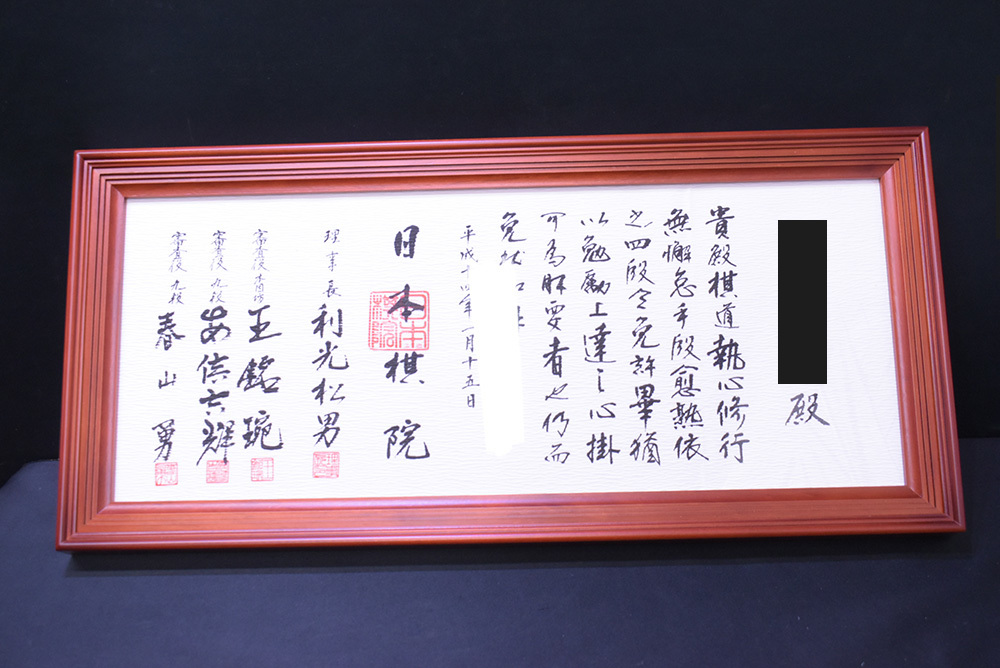 殿
貴殿棋道執心修行
無懈怠手段愈熟依
之四段令免許畢猶
以勉励上達之心掛
可為肝要者也仍而
免状
平成十四年一月十五日
日本棋院
理事長 利光松男
審査役 本因坊 王銘琬
審査役 九段
審査役 九段 春山勇